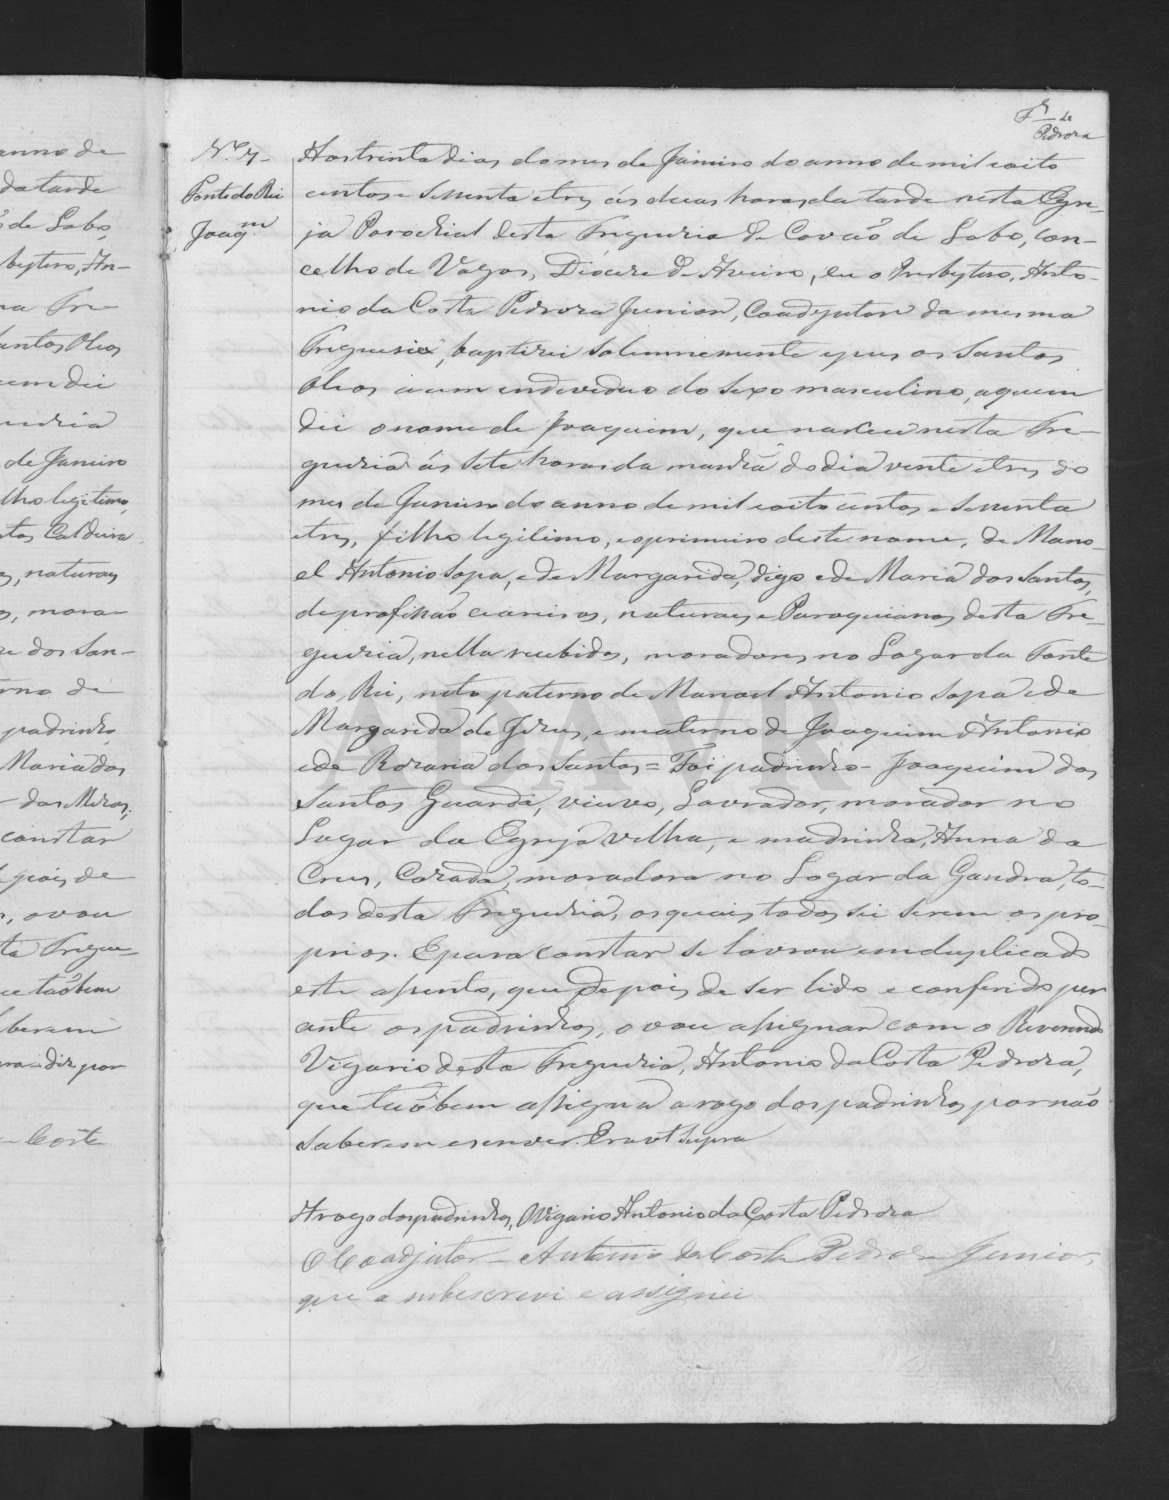 Pedroza
N.º 7
Fonte do Rei
Joaq.m
Aos trinta dias do mes de Janeiro do anno de mil e oito
centos e sessenta e tres ás duas horas da tarde nesta Egre-
ja Parochial desta Freguezia de Covão de Lobo, con-
celho de Vagos, Diocere de Aveiro, eu o Presbytero, Anto-
nio da Costa Pedroza Junior, Coadjutor da mesma
Freguesia, baptizei solemnemente e puz os Santos
Oleos a um endeviduo do sexo masculino, a quem
dei o nome de Joaquim, que nasceu nesta Fre-
guezia ás sete horas da manhã do dia vente e tres do
mes de Janeiro do anno de mil e oito centos e sessenta
e tres, filho legitimo, e o primeiro deste nome, de Mano-
el Antonio Sopa, e de Margarida, digo e de Maria dos Santos,
de profissão ceareiros, naturaes e Paroquianos desta Fre-
guezia, nella recebidos, moradores no Logar da Fonte
do Rei, neto paterno de Manoel Antonio Sopa e de
Margarida de Jezus, e materno de Joaquim Antonio
e de Rozaria dos Santos = Foi padrinho Joaquim dos
Santos Guarda, viuvo, Lavrador, morador no
Lugar da Egreja velha, e madrinha, Anna da
Cruz, Cazada, moradora no Logar da Gandra, to-
dos desta Freguezia, os quais todos sei serem os pro-
prios. E para constar se lavrou em duplicado
este assento, que depois de ser lido e conferido per
ante os padrinhos, o vou assignar com o Reverendo
Vigario desta Freguezia, Antonio da Costa Pedroza,
que taõbem assigna a rogo dos padrinhos por não
saberem escrever. Era ut supra
A rogo dos padrinhos, O Vigario Antonio da Costa Pedroza
O Coadjutor – Antonio da Costa Pedroza Junior,
que a subescrevi e assignei
anno de
da tarde
de Lobo,
bytero, An-
na Fre-
antos Oleos
em dei
uezia
de Janeiro
lho legitimo,
tos Caldeira
naturaes
, mora-
e dos San-
rno de
padrinho
Maria dos
constar
pois de
, o vou
ta Fregue-
ue taõbem
berem
por
Costa
ADAVR